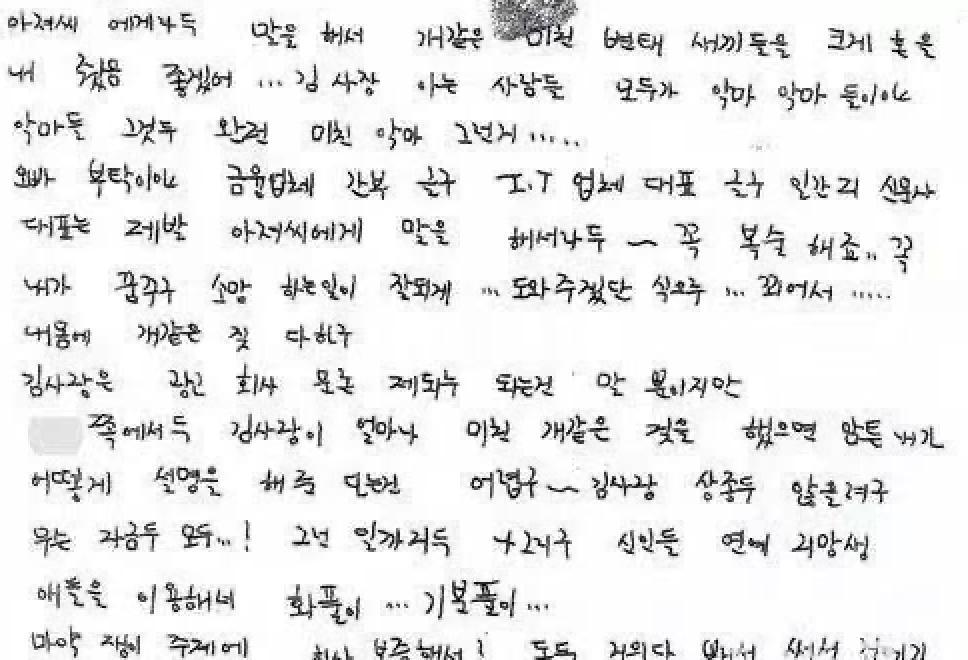 아저씨 에게나득 말을 해서 개같은 미친 변태 새끼들을 크게 혼을
내 줬음 좋겠어 ... 김 사장 아는 사람들 모두가 악마 악마 들이야
악마들 그것두 완전 미친 악마 그런거 .....
오빠 부탁이야 금융업체 간부 글구 I.T 업체 대표 글구 일간지 신문사
대표는 제발 아저씨에게 말을 해서나두 ~ 꼭 복수 해죠.. 꼭
내가 꿈꾸구 소망 하는일이 잘되게 ... 도와주겠단 식으루 ... 꾀어서 .....
내몸에 개같은 짓 다하구
김사장은 광고 회사 모두 제외두 되는건 말 뿐이지만
쪽에서두 김사장이 얼마나 미친 개같은 짓을 했으면 암튼 내가
어떻게 설명을 해 어렵구 ~ 김사장 상종두 않을려구
우는 자금두 모두..! 그런 일까지두 신인들 연예 지망생
애들을 이용해서 화풀이 ... 기분풀이 ...
마약 쟁이 주제에 회사 거의다